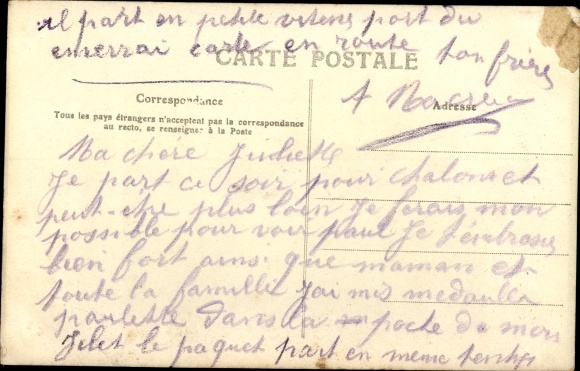 il part en petite vitesse part du
enverrai carte en route ton frère
CARTE POSTALE
A
Correspondance
Adresse
Tous les pays étrangers n'acceptent pas la correspondance
au recto, se renseigner à la Poste
Ma chère Juliette
Je part ce soir pour chalons et
peut-etre plus loin Je ferais mon
possible pour voir paul Je t'embrasse
bien fort ainsi que maman et
toute la famille J'ai mis medaille
paulette dans la poche de mon
Jilet le paquet part en meme temps